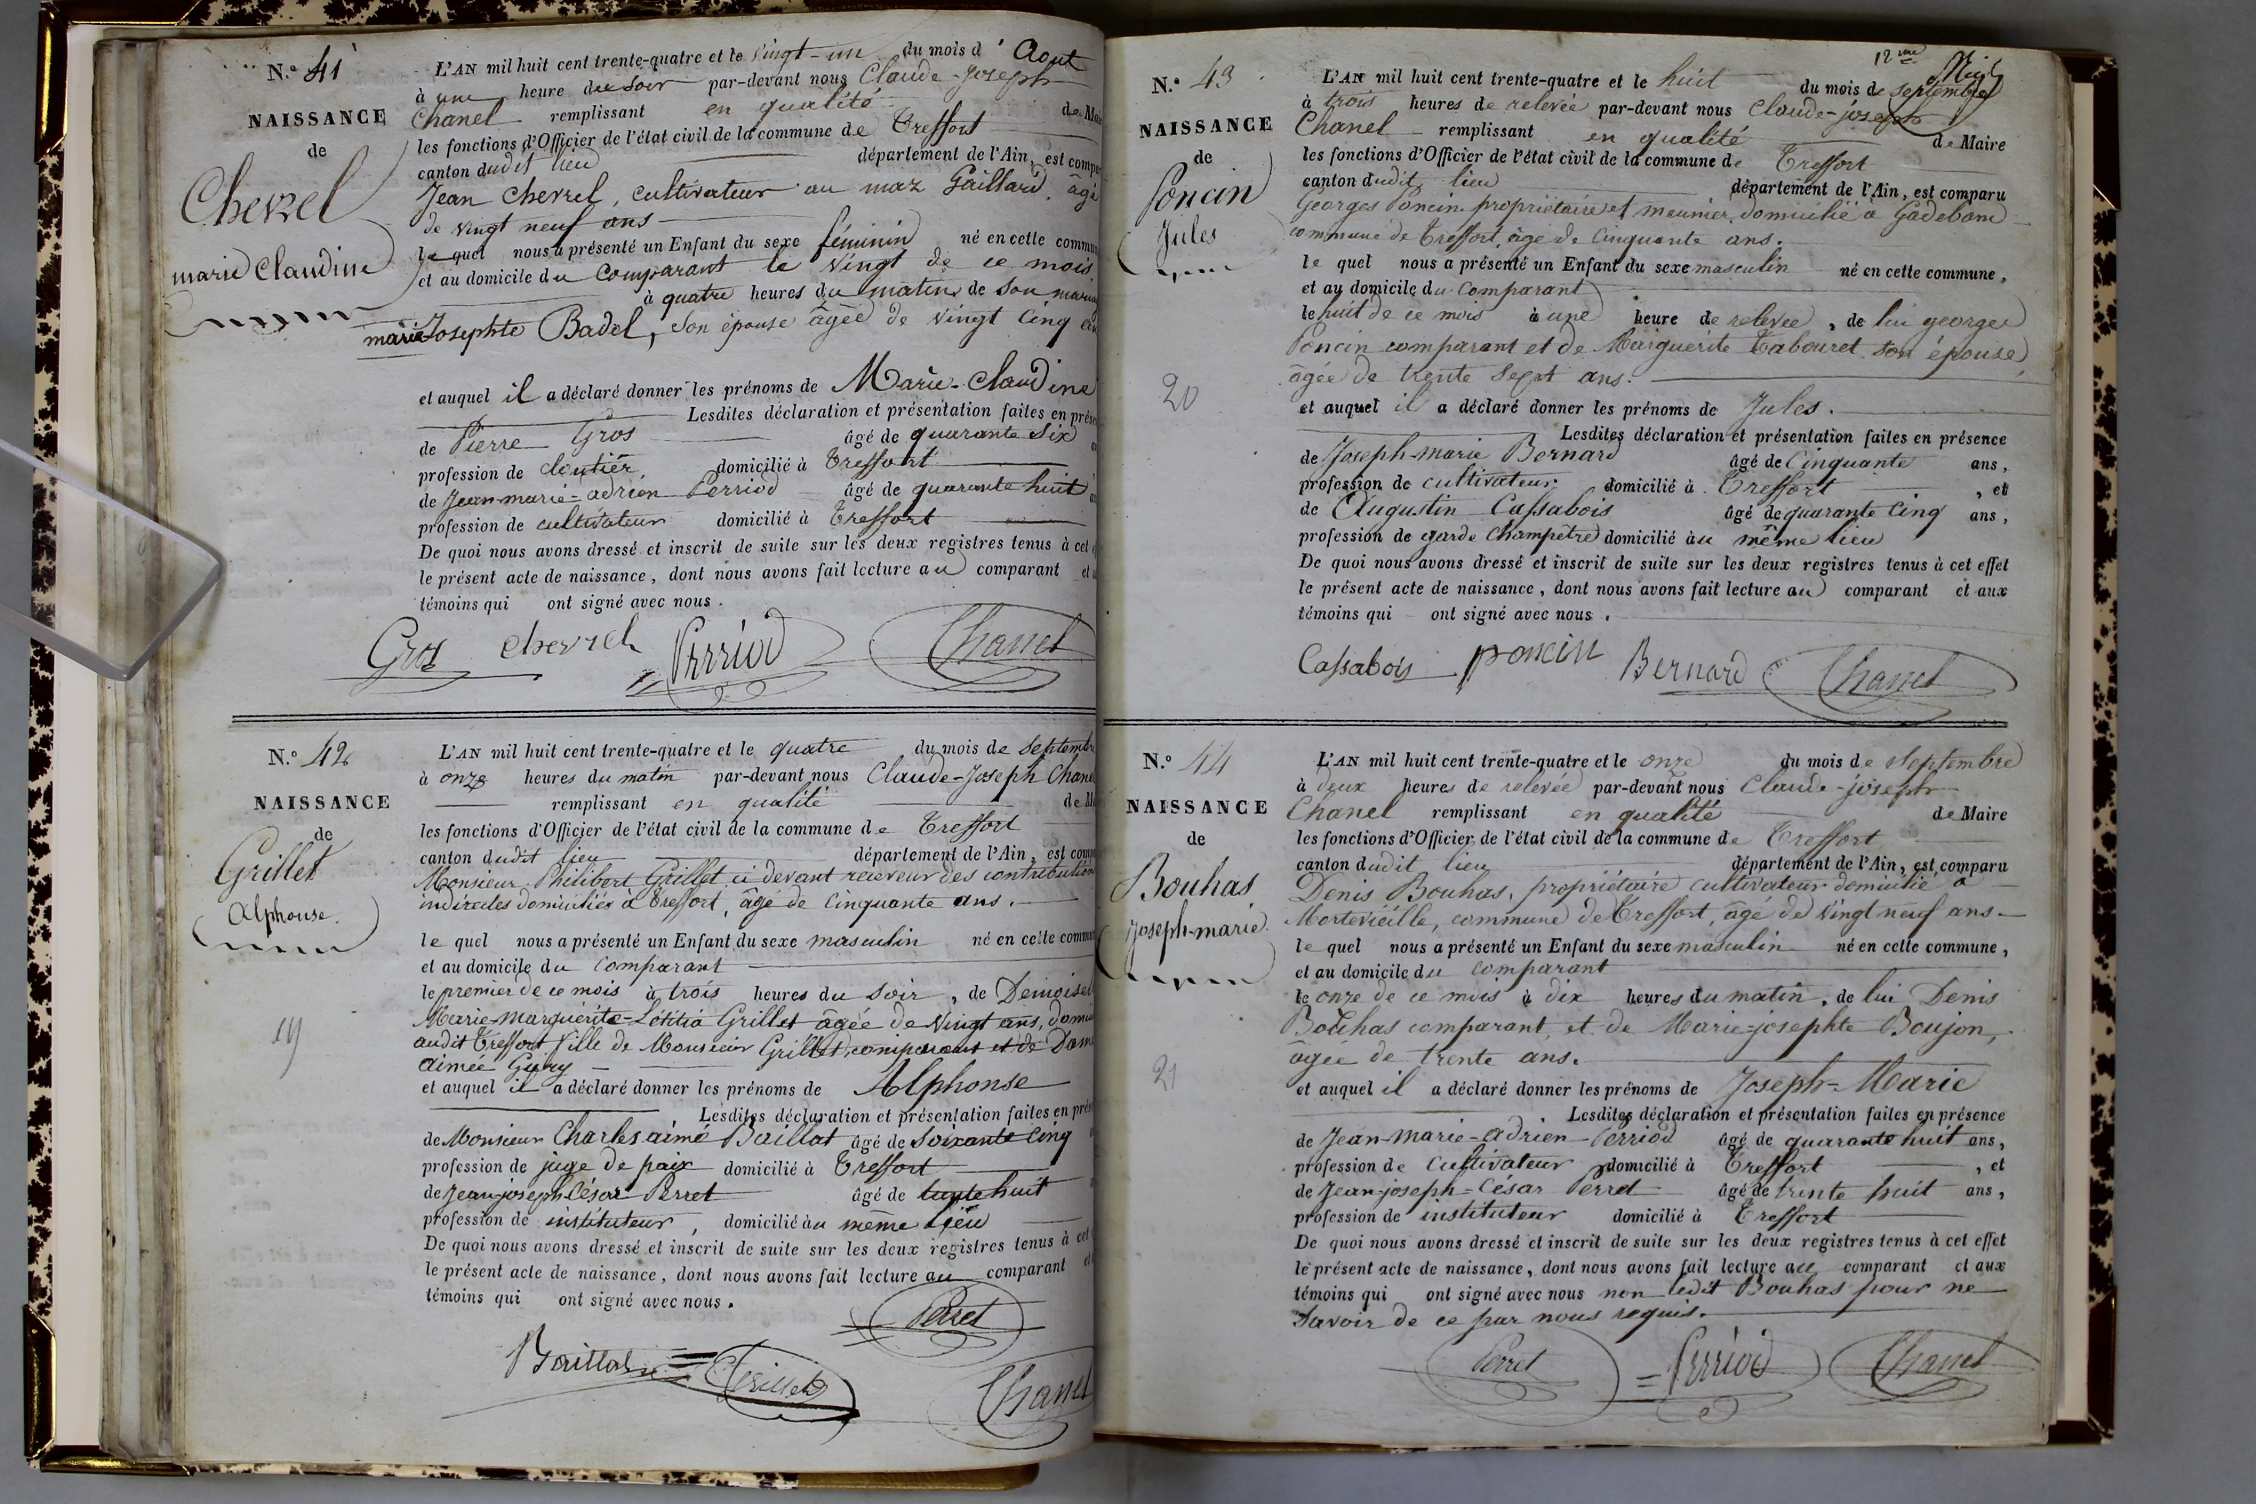 N.o 41
NAISSANCE
de
Chevrel
marie Claudine
L'AN mil huit cent trente-quatre et le vingt-un du mois d'Aout
à une heure du soir par-devant nous Claude-Joseph
Chanel remplissant en qualité de Mai
les fonctions d'Officier de l'état civil de la commune de Treffort
canton dudit lieu département de l'Ain, est compa
Jean Chevrel, cultivateur au maz Gaillard, âgé
de vingt neuf ans
le quel nous a présenté un Enfant du sexe féminin né en cette commun
et au domicile du comparant le vingt de ce mois
à quatre heures du matin de son mariag
marie Josephte Badel, son épouse âgée de vingt cinq an
et auquel il a déclaré donner les prénoms de Marie-Claudine
Lesdites déclaration et présentation faites en prése
de Pierre Gros âgé de quarante six
profession de cloutier domicilié à Treffort
de Jean-marie-adrien Perriod âgé de quarante huit
profession de cultivateur domicilié à Treffort
De quoi nous avons dressé et inscrit de suite sur les deux registres tenus à cet
le présent acte de naissance, dont nous avons fait lecture au comparant et
témoins qui ont signé avec nous.
Gros chevrel Perriod Chanel
N.o 42
NAISSANCE
de
Grillet
Alphonse.
19
L'AN mil huit cent trente-quatre et le quatre du mois de septembr
à onze heures du matin par-devant nous Claude-Joseph Chane
remplissant en qualité de M
les fonctions d'Officier de l'état civil de la commune de Treffort
canton dudit lieu département de l'Ain, est comp
Monsieur Philibert Grillet ci devant receveur des contribution
indirectes domicilié à Treffort, âgé de cinquante ans.
le quel nous a présenté un Enfant du sexe masculin né en cette commun
et au domicile du comparant
le premier de ce mois à trois heures du soir, de Demoisel
Marie-marguérite-Létitia Grillet âgée de vingt ans, domic
audit Treffort fille de Monsieur Grillet, comparant et de Dame
aimée Guiny
et auquel il a déclaré donner les prénoms de Alphonse
Lesdites déclaration et présentation faites en prés
de Monsieur Charles aimé Baillat âgé de soixante cinq
profession de juge de paix domicilié à Treffort
de Jean-joseph-César Perret âgé de trente huit
profession de instituteur, domicilié au même lieu
De quoi nous avons dressé et inscrit de suite sur les deux registres tenus à cet
le présent acte de naissance, dont nous avons fait lecture au comparant et
témoins qui ont signé avec nous.
Perret
Baillat Grillet Chanel
N.o 43
NAISSANCE
de
Poncin
Jules
20
12me
L'AN mil huit cent trente-quatre et le huit du mois de septembre
à trois heures de relevée par-devant nous Claude-joseph
Chanel remplissant en qualité de Maire
les fonctions d'Officier de l'état civil de la commune de Treffort
canton dudit lieu département de l'Ain, est comparu
Georges Poncin propriétaire et meunier, domicilié à Gadebane
commune de Treffort, âgé de cinquante ans.
le quel nous a présenté un Enfant du sexe masculin né en cette commune,
et au domicile du comparant
le huit de ce mois à une heure de relevée, de lui george
Poncin comparant et de Marguerite Tabouret son épouse,
âgée de trente sept ans.
et auquel il a déclaré donner les prénoms de Jules.
Lesdites déclaration et présentation faites en présence
de Joseph-marie Bernard âgé de Cinquante ans,
profession de cultivateur domicilié à Treffort, et
de Augustin Cassabois âgé de quarante cinq ans,
profession de garde champetre domicilié au même lieu
De quoi nous avons dressé et inscrit de suite sur les deux registres tenus à cet effet
le présent acte de naissance, dont nous avons fait lecture au comparant et aux
témoins qui ont signé avec nous.
Cassabois poncin Bernard Chanel
N.o 44
NAISSANCE
de
Bouhas
joseph-marie.
21
L'AN mil huit cent trente-quatre et le onze du mois de septembre
à deux heures de relevée par-devant nous Claude-joseph
Chanel remplissant en qualité de Maire
les fonctions d'Officier de l'état civil de la commune de Treffort
canton dudit lieu département de l'Ain, est comparu
Denis Bouhas, propriétaire cultivateur domicilié à
Mortevieille, commune de Treffort, âgé de vingt neuf ans
le quel nous a présenté un Enfant du sexe masculin né en cette commune,
et au domicile du comparant
le onze de ce mois à dix heures du matin, de lui Denis
Bouhas comparant, et de Marie-josephte Boujon,
âgée de trente ans.
et auquel il a déclaré donner les prénoms de Joseph-Marie
Lesdites déclaration et présentation faites en présence
de Jean-marie-adrien-Perriod âgé de quarante huit ans,
profession de cultivateur domicilié à Treffort, et
de Jean-joseph-César Perret âgé de trente huit ans,
profession de instituteur domicilié à Treffort
De quoi nous avons dressé et inscrit de suite sur les deux registres tenus à cet effet
le présent acte de naissance, dont nous avons fait lecture au comparant et aux
témoins qui ont signé avec nous non ledit Bouhas pour ne
savoir de ce par nous requis.
Perret Perriod Chanel